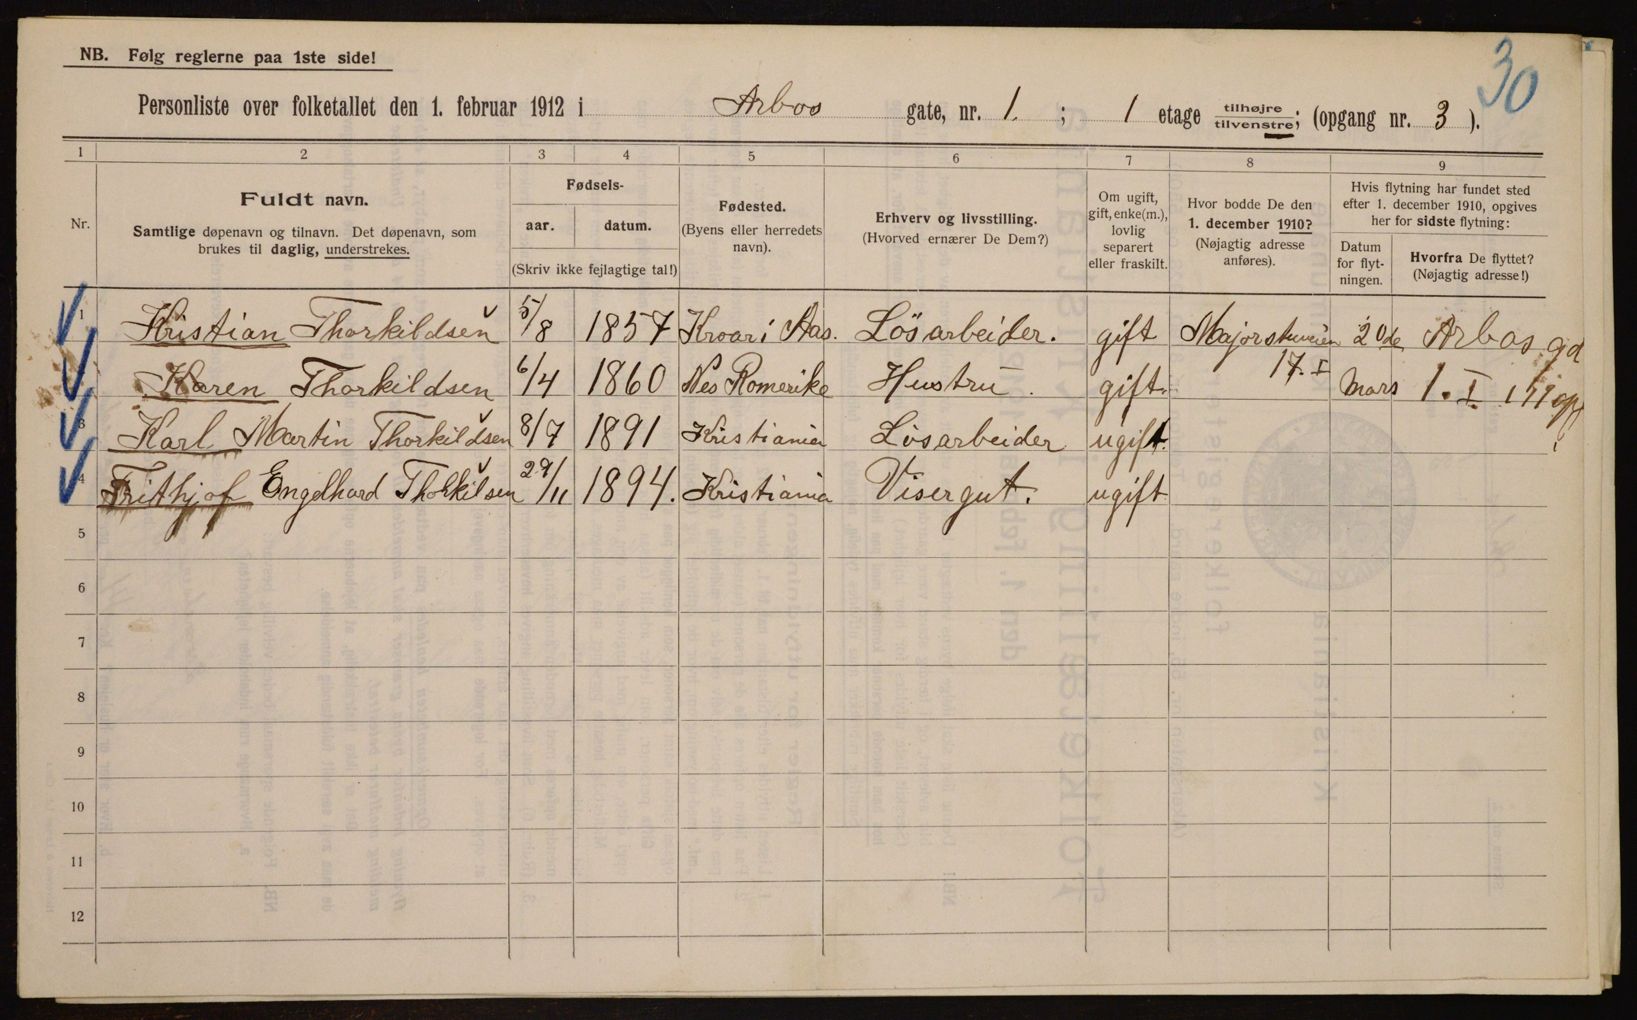 NB. Følg reglerne paa 1ste side!
30
Personliste over folketallet den 1. februar 1912 i Arbos gate, nr. 1. ; 1 etage tilhøjre tilvenstre; (opgang nr. 3 ).
1 2 3 4 5 6 7 8 9
Nr.
Fuldt navn.
Samtlige døpenavn og tilnavn. Det døpenavn, som
brukes til daglig, understrekes.
Fødsels-
aar. datum.
(Skriv ikke fejlagtige tal!)
Fødested.
(Byens eller herredets
navn).
Erhverv og livsstilling.
(Hvorved ernærer De Dem?)
Om ugift,
gift, enke(m.),
lovlig
separert
eller fraskilt.
Hvor bodde De den
1. december 1910?
(Nøjagtig adresse
anføres).
Hvis flytning har fundet sted
efter 1. december 1910, opgives
her for sidste flytning:
Datum
for flyt-
ningen.
Hvorfra De flyttet?
(Nøjagtig adresse!)
1 Kristian Thorkildsen 5/8 1857 Kroer i Aas. Lösarbeider. gift Majorstuveien 20de Arbos gd
17. I
Karen Thorkildsen 6/4 1860 Nes Romerike Hustru. gift. Mars 1. I
3 Karl Martin Thorkildsen 8/7 1891 Kristiania Lösarbeider ugift.
4 Frithjof Engelhard Thorkilsen 29/11 1894. Kristiania Visergut. ugift
5
6
7
8
9
10
11
12